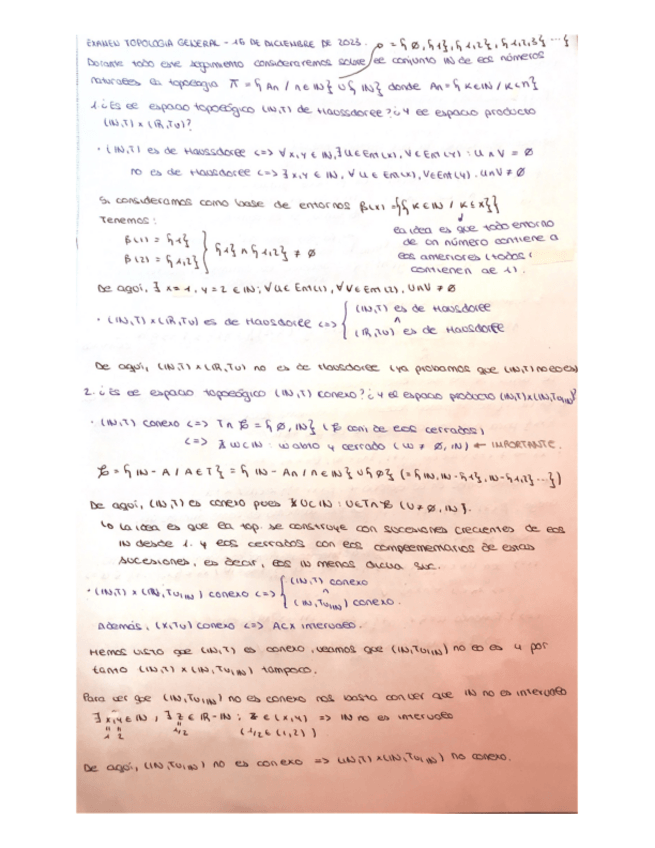 EXAMEN TOPOLOGIA GENERAL - 16 DE DICIEMBRE DE 2023. = {∅, {1}, {1,2}, {1,2,3} ...}
Durante todo este seguimiento consideraremos sobre el conjunto IN de los números
naturales la topología T = {An / n ∈ IN} ∪ {IN} donde An = {K ∈ IN / K < n}
1. ¿Es el espacio topológico (IN,T) de Haussdorff? ¿Y el espacio producto
(IN,T) x (IR,Tu)?
· (IN,T) es de Haussdorff <=> ∀x,y ∈ IN, ∃ U ∈ Ent(x), V ∈ Ent(y) : U ∩ V = ∅
no es de Haussdorff <=> ∃ x,y ∈ IN, ∀ U ∈ Ent(x), V ∈ Ent(y). U∩V ≠ ∅
Si consideramos como base de entornos β(x) = {{K ∈ IN / K ≤ x}}
Tenemos:
β(1) = {1}
β(2) = {1,2}
{1} ∩ {1,2} ≠ ∅
la idea es que todo entorno
de un número contiene a
los anteriores (todos
contienen al 1).
De aquí, ∃ x=1, y=2 ∈ IN; ∀U ∈ Ent(1), ∀V ∈ Ent(2), U∩V ≠ ∅
· (IN,T) x (IR,Tu) es de Hausdorff <=> { (IN,T) es de Hausdorff
∧
(IR,Tu) es de Hausdorff
De aquí, (IN,T) x (IR,Tu) no es de Hausdorff (ya probamos que (IN,T) no
2. ¿Es el espacio topológico (IN,T) conexo? ¿Y el espacio producto (IN,T)x(IN,Tu|IN)?
· (IN,T) conexo <=> T ∩ C = {∅, IN} (C conj de los cerrados)
<=> ∄ W ⊂ IN : W abto y cerrado (W ≠ ∅, IN) ← IMPORTANTE.
C = {IN - A / A ∈ T} = {IN - An / n ∈ IN} ∪ {∅} (= {IN, IN-{1}, IN-{1,2} ...})
De aquí, (IN,T) es conexo pues ∄ U ⊂ IN : U ∈ T ∩ C (U ≠ ∅, IN).
↳ La idea es que la top. se construye con sucesiones crecientes de los
IN desde 1. y los cerrados con los complementarios de estas
sucesiones, es decir, los IN menos dicha suc.
· (IN,T) x (IN,Tu|IN) conexo <=> { (IN,T) conexo
∧
(IN,Tu|IN) conexo.
Además, (X,Tu) conexo <=> ACX intervalo.
Hemos visto que (IN,T) es conexo, veamos que (IN,Tu|IN) no lo es y por
tanto (IN,T) x (IN,Tu|IN) tampoco.
Para ver que (IN,Tu|IN) no es conexo nos basta con ver que IN no es intervalo
∃ x,y ∈ IN, ∃ z ∈ IR-IN : z ∈ (x,y) => IN no es intervalo
1 2 1,2 (1,2 ∈ (1,2))
De aquí, (IN,Tu|IN) no es conexo => (IN,T) x (IN,Tu|IN) no conexo.